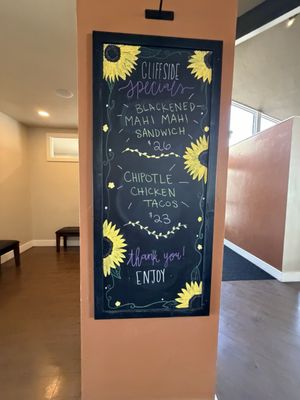 CLIFFSIDE
specials
BLACKENED
MAHI MAHI
SANDWICH
$26
CHIPOTLE
CHICKEN
TACOS
$23
thank you!
ENJOY